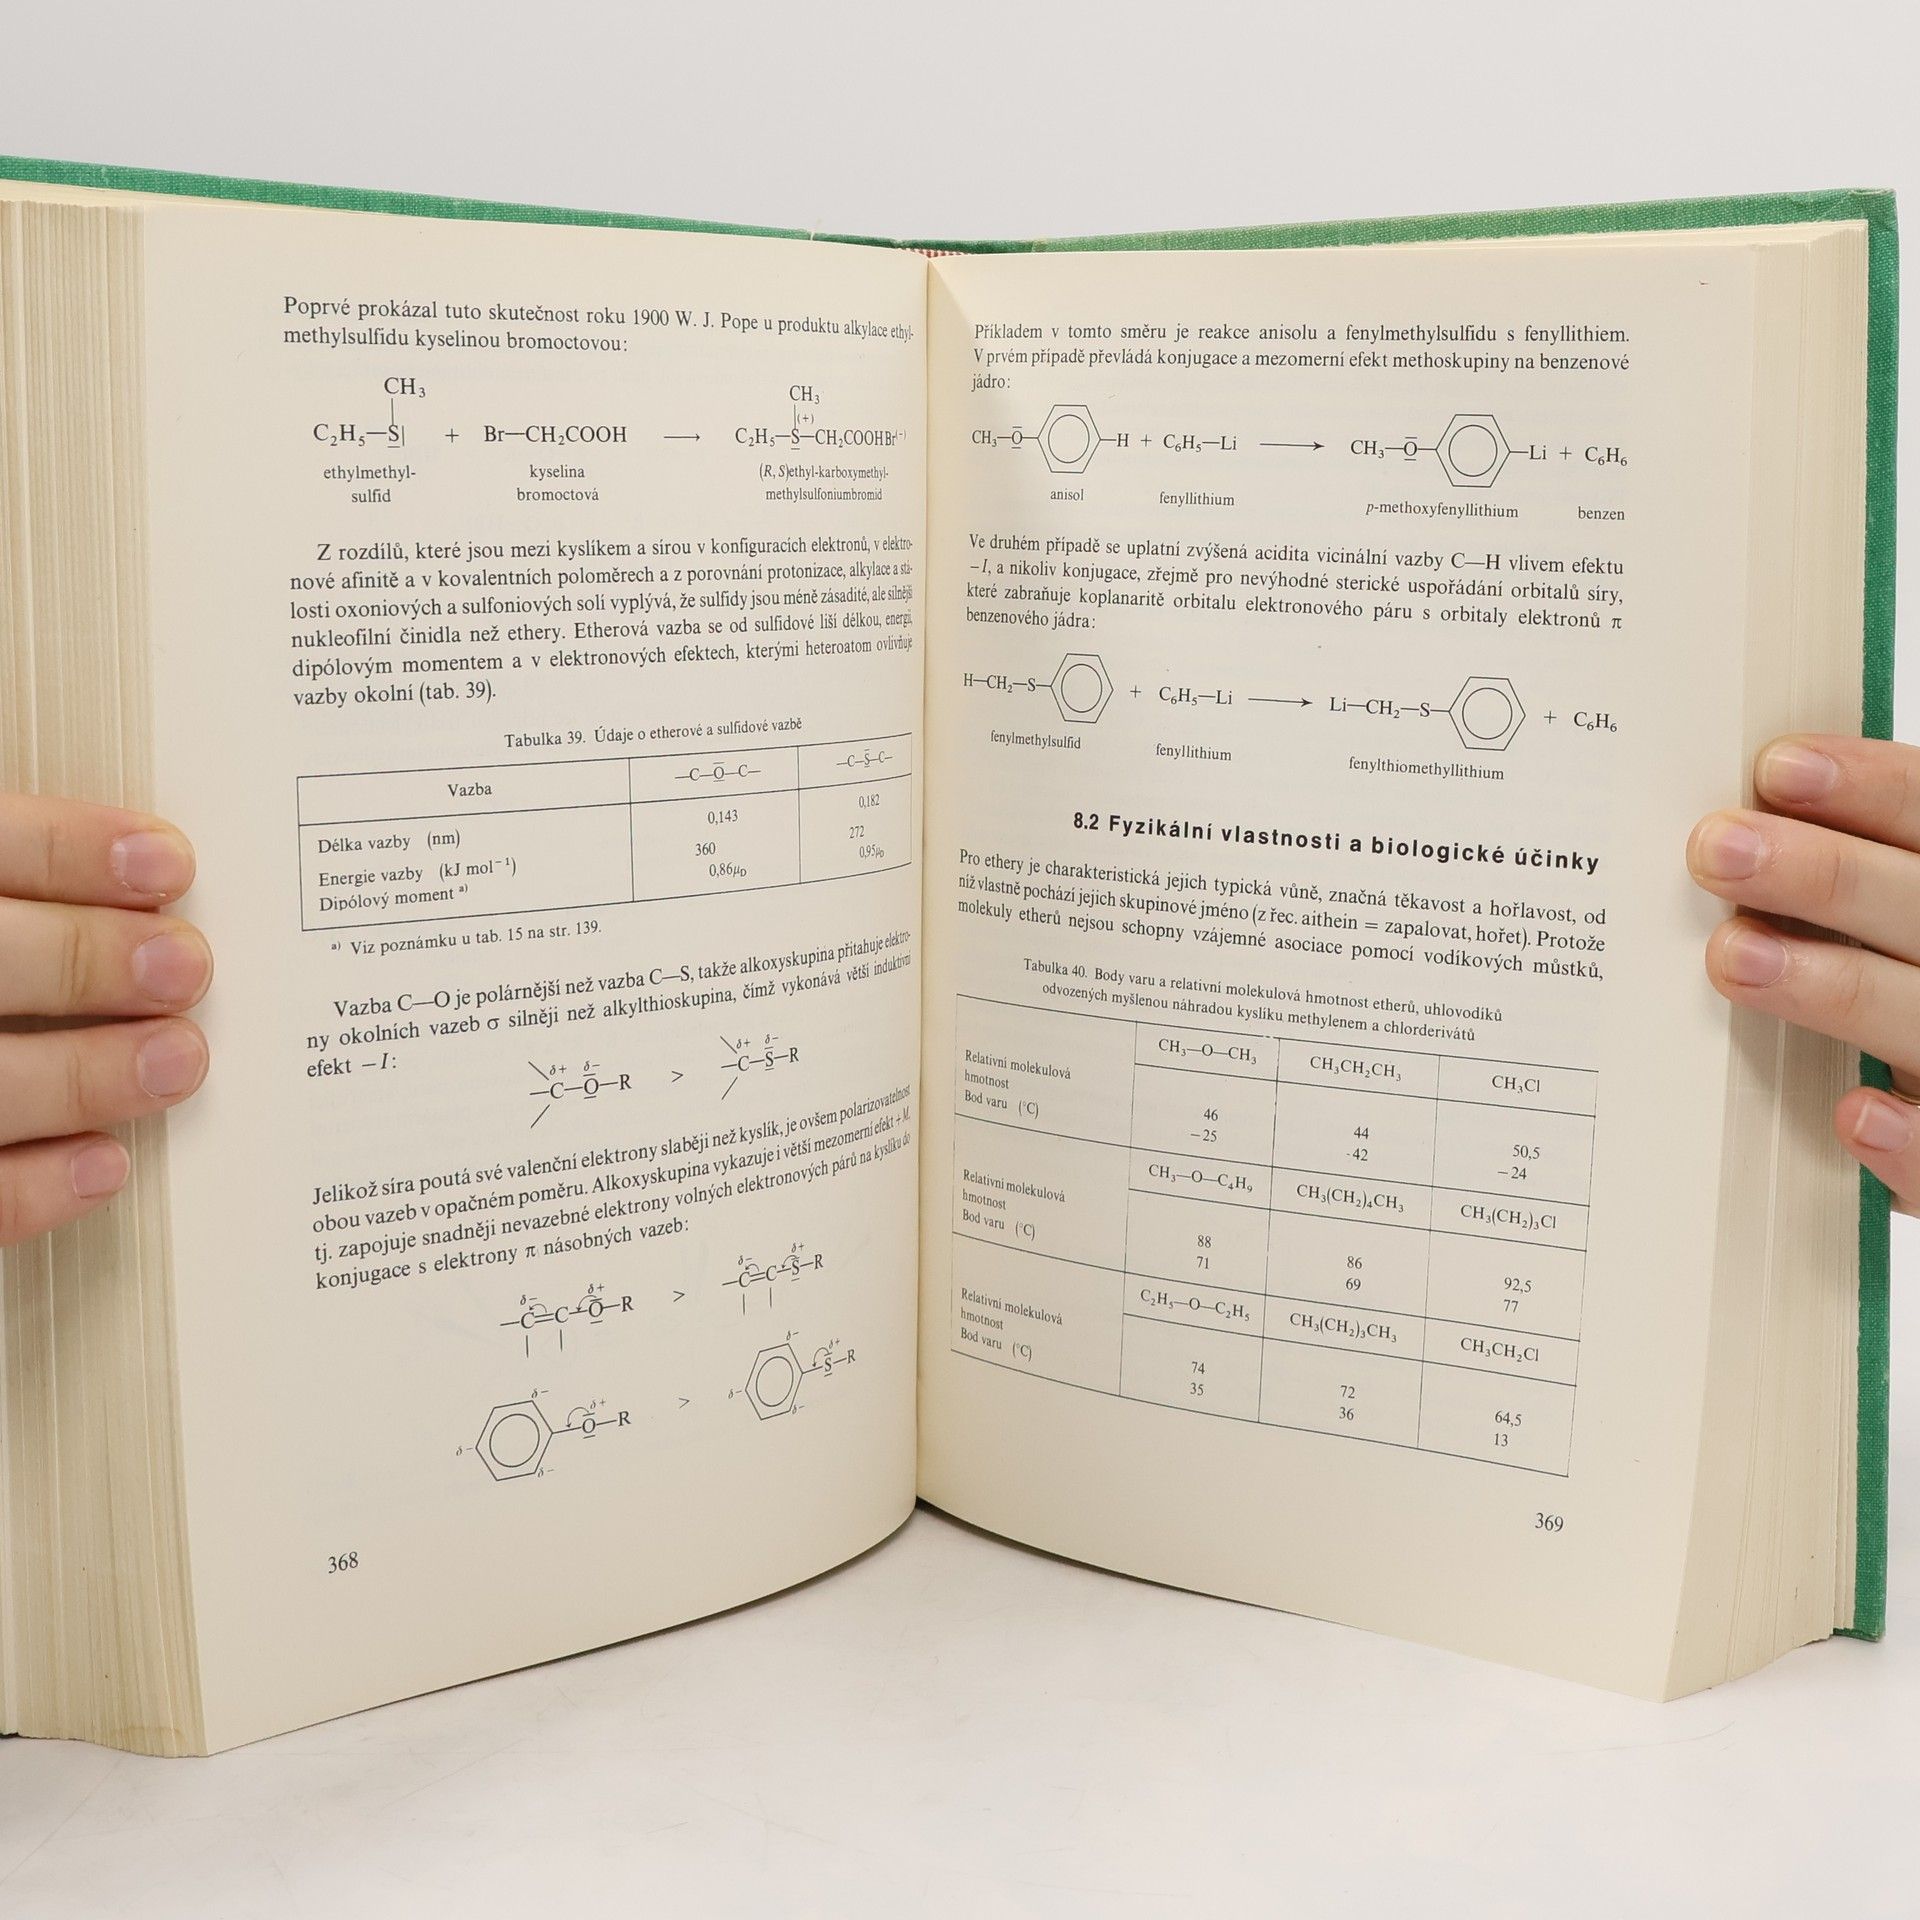 Poprvé prokázal tuto skutečnost roku 1900 W. J. Pope u produktu alkylace ethyl-
methylsulfidu kyselinou bromoctovou:
CH₃
C₂H₅—S| + Br—CH₂COOH ⟶ C₂H₅—S—CH₂COOHBr⁽⁻⁾
CH₃
(+)
ethylmethyl-
sulfid
kyselina
bromoctová
(R, S)ethyl-karboxymethyl-
methylsulfoniumbromid
Z rozdílů, které jsou mezi kyslíkem a sírou v konfiguracích elektronů, v elektro-
nové afinitě a v kovalentních poloměrech a z porovnání protonizace, alkylace a stá-
losti oxoniových a sulfoniových solí vyplývá, že sulfidy jsou méně zásadité, ale silnější
nukleofilní činidla než ethery. Etherová vazba se od sulfidové liší délkou, energií,
dipólovým momentem a v elektronových efektech, kterými heteroatom ovlivňuje
vazby okolní (tab. 39).
Tabulka 39. Údaje o etherové a sulfidové vazbě
Vazba —C—O—C— —C—S—C—
Délka vazby (nm) 0,143 0,182
Energie vazby (kJ mol⁻¹) 360 272
Dipólový moment ᵃ⁾ 0,86μD 0,95μD
ᵃ⁾ Viz poznámku u tab. 15 na str. 139.
Vazba C—O je polárnější než vazba C—S, takže alkoxyskupina přitahuje elektro-
ny okolních vazeb σ silněji než alkylthioskupina, čímž vykonává větší induktivní
efekt −I:
δ+ δ− δ+ δ−
—C—O—R > —C—S—R
Jelikož síra poutá své valenční elektrony slaběji než kyslík, je ovšem polarizovatelnost
obou vazeb v opačném poměru. Alkoxyskupina vykazuje i větší mezomerní efekt +M,
tj. zapojuje snadněji nevazebné elektrony volných elektronových párů na kyslíku do
konjugace s elektrony π násobných vazeb:
δ− δ+ δ− δ+
—C=C—O—R > —C=C—S—R
δ− δ+ δ− δ+
δ− O—R > δ− S—R
δ− δ−
368
Příkladem v tomto směru je reakce anisolu a fenylmethylsulfidu s fenyllithiem.
V prvém případě převládá konjugace a mezomerní efekt methoskupiny na benzenové
jádro:
CH₃—O— —H + C₆H₅—Li ⟶ CH₃—O— —Li + C₆H₆
anisol fenyllithium p-methoxyfenyllithium benzen
Ve druhém případě se uplatní zvýšená acidita vicinální vazby C—H vlivem efektu
−I, a nikoliv konjugace, zřejmě pro nevýhodné sterické uspořádání orbitalů síry,
které zabraňuje koplanaritě orbitalu elektronového páru s orbitaly elektronů π
benzenového jádra:
H—CH₂—S— + C₆H₅—Li ⟶ Li—CH₂—S— + C₆H₆
fenylmethylsulfid fenyllithium fenylthiomethyllithium
8.2 Fyzikální vlastnosti a biologické účinky
Pro ethery je charakteristická jejich typická vůně, značná těkavost a hořlavost, od
níž vlastně pochází jejich skupinové jméno (z řec. aithein = zapalovat, hořet). Protože
molekuly etherů nejsou schopny vzájemné asociace pomocí vodíkových můstků,
Tabulka 40. Body varu a relativní molekulová hmotnost etherů, uhlovodíků
odvozených myšlenou náhradou kyslíku methylenem a chlorderivátů
CH₃—O—CH₃ CH₃CH₂CH₃ CH₃Cl
Relativní molekulová
hmotnost 46 44 50,5
Bod varu (°C) −25 -42 −24
CH₃—O—C₄H₉ CH₃(CH₂)₄CH₃ CH₃(CH₂)₃Cl
Relativní molekulová
hmotnost 88 86 92,5
Bod varu (°C) 71 69 77
C₂H₅—O—C₂H₅ CH₃(CH₂)₃CH₃ CH₃CH₂Cl
Relativní molekulová
hmotnost 74 72 64,5
Bod varu (°C) 35 36 13
369